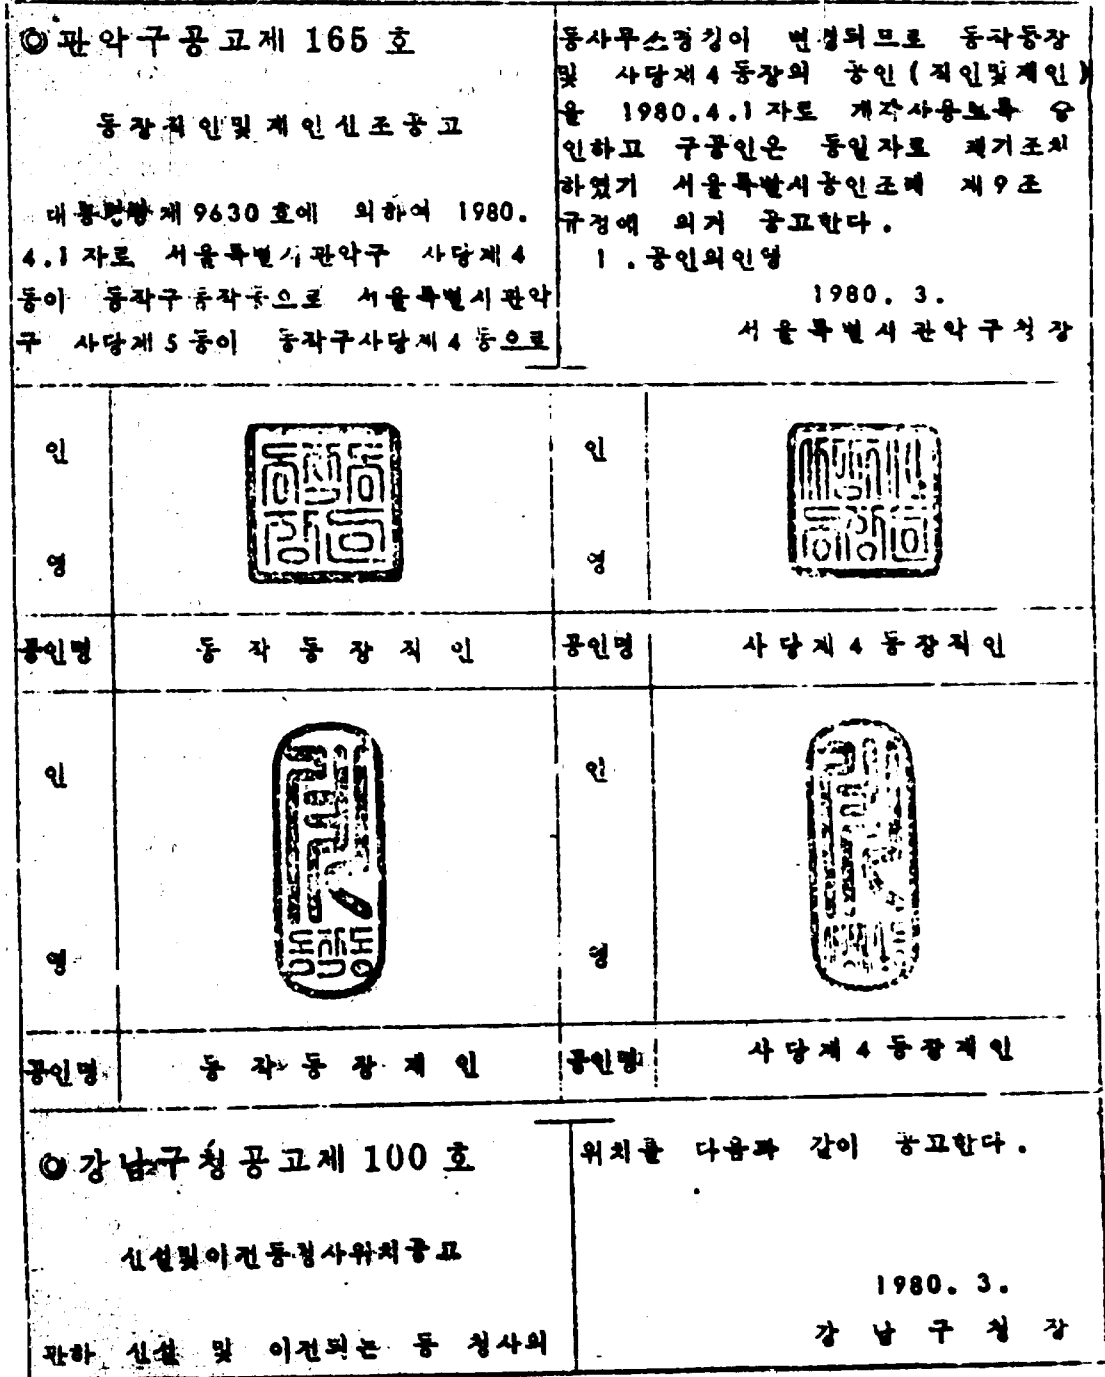 ◎관악구공고제 165 호
동장직인및계인신조공고
대통령령제 9630 호에 의하여 1980.
4.1 자로 서울특별시관악구 사당제4
동이 동작구동작동으로 서울특별시관악
구 사당제5동이 동작구사당제4동으로
동사무소명칭이 변경되므로 동작동장
및 사당제4동장의 공인(직인및계인)
을 1980.4.1 자로 개각사용토록 승
인하고 구공인은 동일자로 폐기조치
하였기 서울특별시공인조례 제9조
규정에 의거 공고한다.
1. 공인의인영
1980. 3.
서울특별시관악구청장
인영
인영
공인명 동작동장직인 공인명 사당제4동장직인
인영
인영
공인명 동작동장계인 공인명 사당제4동장계인
◎강남구청공고제 100 호
신설및이전동청사위치공고
관하 신설 및 이전되는 동 청사의
위치를 다음과 같이 공고한다.
1980. 3.
강남구청장